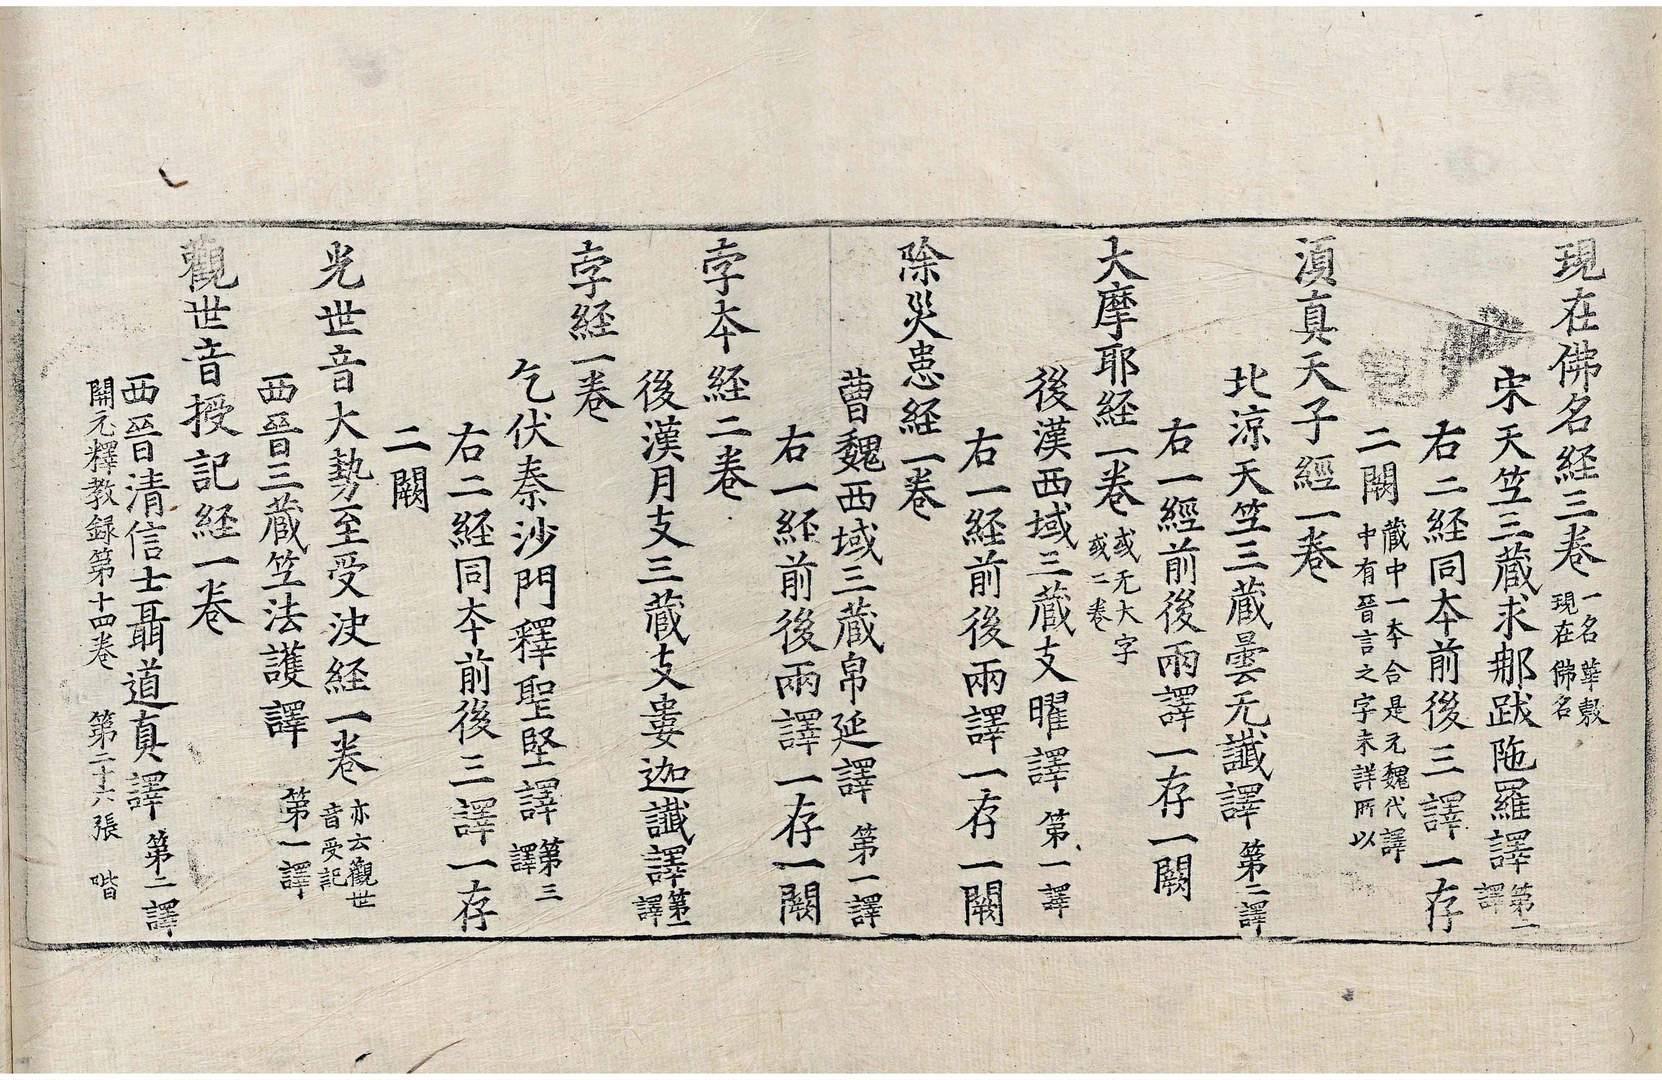 現在佛名経三卷一名華敷現在佛名
宋天笁三藏求那跋陁羅譯第一譯
右二経同夲前後三譯一存
二闕藏中一夲合是元魏代譯中有晉言之字未詳所以
湏真天子經一卷
北涼天笁三藏曇无讖譯第二譯
右一經前後兩譯一存一闕
大摩耶経一卷或无大字或二卷
後漢西域三藏支曜譯第一譯
右一経前後兩譯一存一闕
除災患経一卷
曹魏西域三藏帛延譯第一譯
右一経前後兩譯一存一闕
孛夲経二卷
後漢月支三藏支婁迦讖譯第一譯
孛経一卷
乞伏秦沙門釋聖堅譯第三譯
右二経同夲前後三譯一存
二闕
光世音大勢至受决経一卷亦云觀世音受記
西晉三藏笁法護譯第一譯
觀世音授記経一卷
西晉清信士聶道真譯第二譯
開元釋教録第十四卷 第二十六張 喈